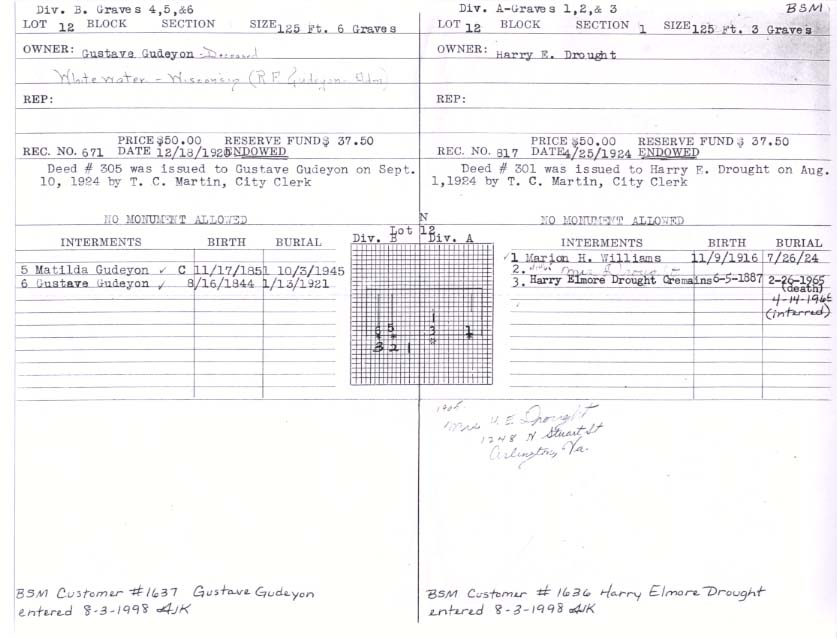 Div. B. Graves 4,5,&6
LOT 12 BLOCK SECTION SIZE 125 Ft. 6 Graves
OWNER: Gustave Gudeyon - Deceased
Whitewater - Wisconsin (R.F. Gudeyon
REP:
PRICE $50.00 RESERVE FUND $ 37.50
REC. NO. 671 DATE 12/18/1920 ENDOWED
Deed # 305 was issued to Gustave Gudeyon on Sept.
10, 1924 by T. C. Martin, City Clerk
NO MONUMENT ALLOWED
INTERMENTS BIRTH BURIAL
5 Matilda Gudeyon ✓ C 11/17/1851 10/3/1945
6 Gustave Gudeyon ✓ 8/16/1844 1/13/1921
BSM Customer #1637 Gustave Gudeyon
entered 8-3-1998 AJK
N
Lot 12
Div. B Div. A
6 5 3 1
3 2 1
Div. A-Graves 1,2,& 3 BSM
LOT 12 BLOCK SECTION 1 SIZE 125 Ft. 3 Graves
OWNER: Harry E. Drought
REP:
PRICE $50.00 RESERVE FUND $ 37.50
REC. NO. 817 DATE 4/25/1924 ENDOWED
Deed # 301 was issued to Harry E. Drought on Aug.
1,1924 by T. C. Martin, City Clerk
NO MONUMENT ALLOWED
INTERMENTS BIRTH BURIAL
✓1 Marion H. Williams 11/9/1916 7/26/24
2. Mrs Drought
3. Harry Elmore Drought Cremains 6-5-1887 2-26-1965
(death)
4-14-1965
(interred)
Mrs H. E. Drought
1248 N Stuart St
Arlington, Va.
BSM Customer # 1636 Harry Elmore Drought
entered 8-3-1998 AJK